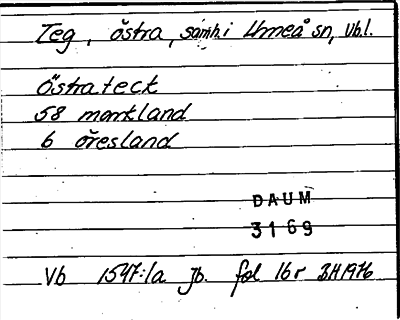 Teg, östra, samh. i Umeå sn, Vbl.
östra teck
58 markland
6 öresland
DAUM
3169
Vb 1547:1a jb. fol 16 r BH1976